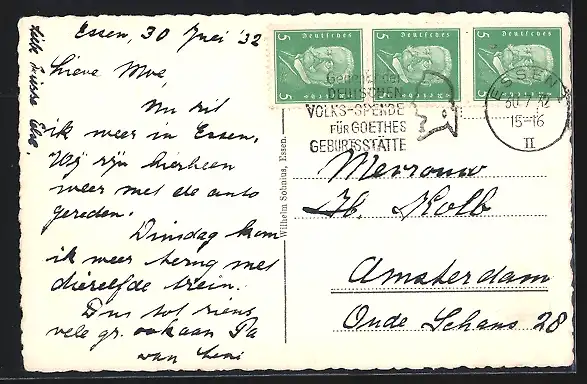 Essen, 30 Juli 32
Lieve Moe
Nu zit
ik weer in Essen.
Wij zijn hierheen
weer met de auto
gereden.
Dinsdag kom
ik weer terug met
dezelfde trein.
Dus tot ziens
vele gr. ook aan Pa
van
Deutsches Reich
5 5
Deutsches Reich
5 5
Deutsches Reich
5 5
Gedenket der
DEUTSCHEN
VOLKS-SPENDE
FÜR GOETHES
GEBURTSSTÄTTE
ESSEN
30.7.32
15-16
II
Wilhelm Sohnius, Essen.
Mevrouw
H. Kolb
Amsterdam
Oude Schans 28